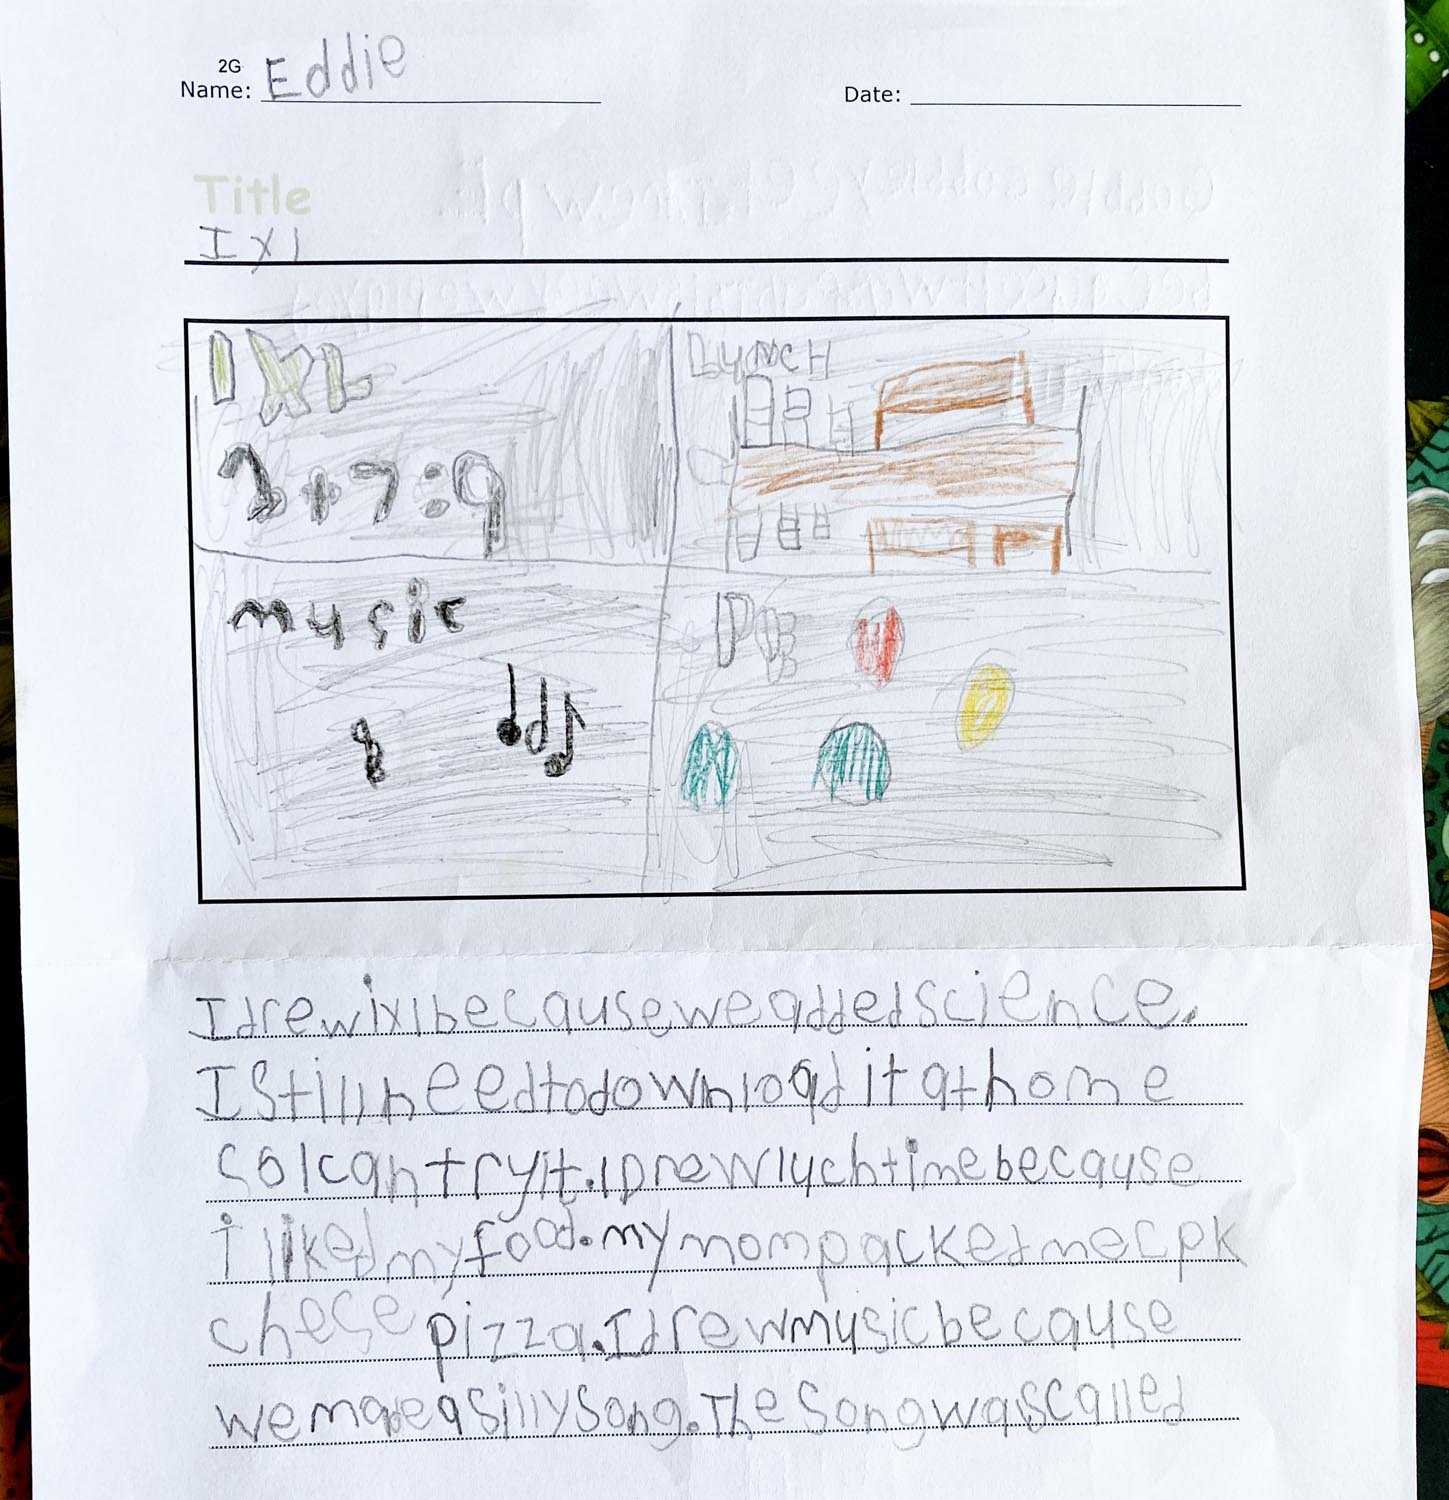 2G
Name: Eddie
Date:
Title
Ixl
IXL
LUNCH
2+7=9
music
PE
I drew ixl because we added science.
I still need to download it at home
so I can try it. I Drew luch time because
i liked my food. my mom packed me
chese pizza. I drew music because
we made a silly song. The Song was called